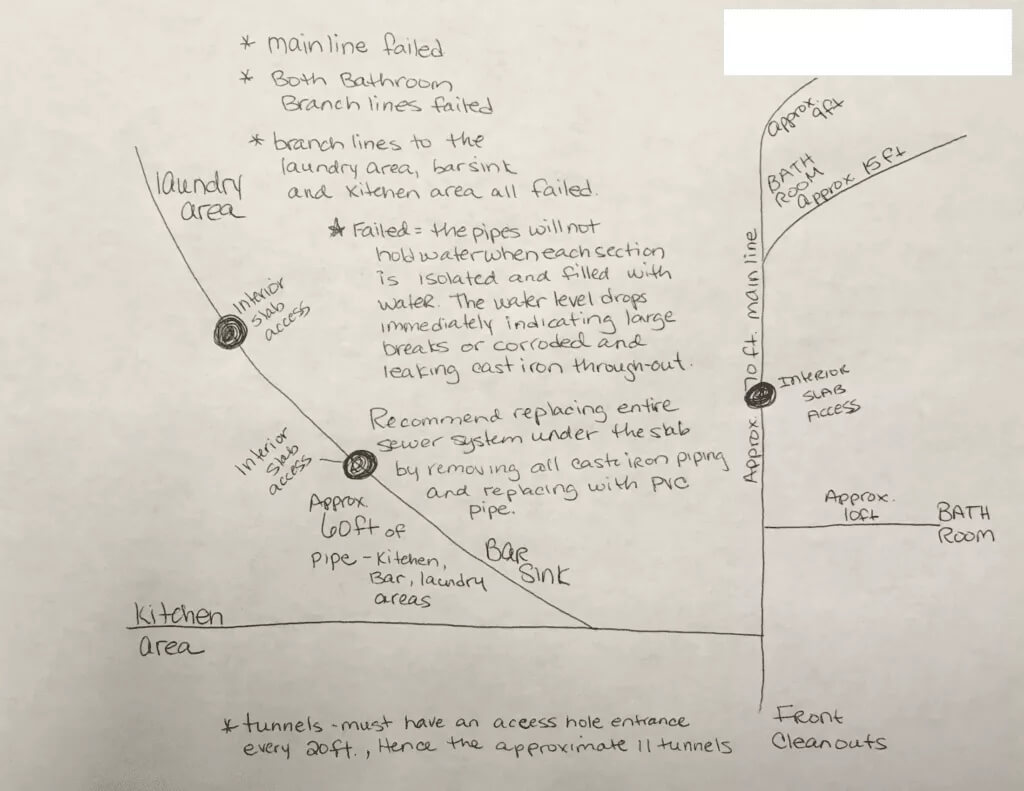 * mainline failed
* Both Bathroom
Branch lines failed
* branch lines to the
laundry area, barsink
and Kitchen area all failed.
* Failed = the pipes will not
hold water when each section
is isolated and filled with
water. The water level drops
immediately indicating large
breaks or corroded and
leaking cast iron through-out.
Recommend replacing entire
sewer system under the slab
by removing all caste iron piping
and replacing with PVC
pipe.
laundry
area
Interior
slab
access
Interior
slab
access
Approx.
60ft of
pipe - Kitchen,
Bar, laundry
areas
Bar
Sink
Kitchen
area
approx.
9ft
BATH
ROOM
approx 15ft
Approx. 70ft. main line
INterior
SLAB
ACCESS
Approx.
10ft
BATH
ROOM
Front
Cleanouts
* tunnels - must have an access hole entrance
every 20ft., Hence the approximate 11 tunnels